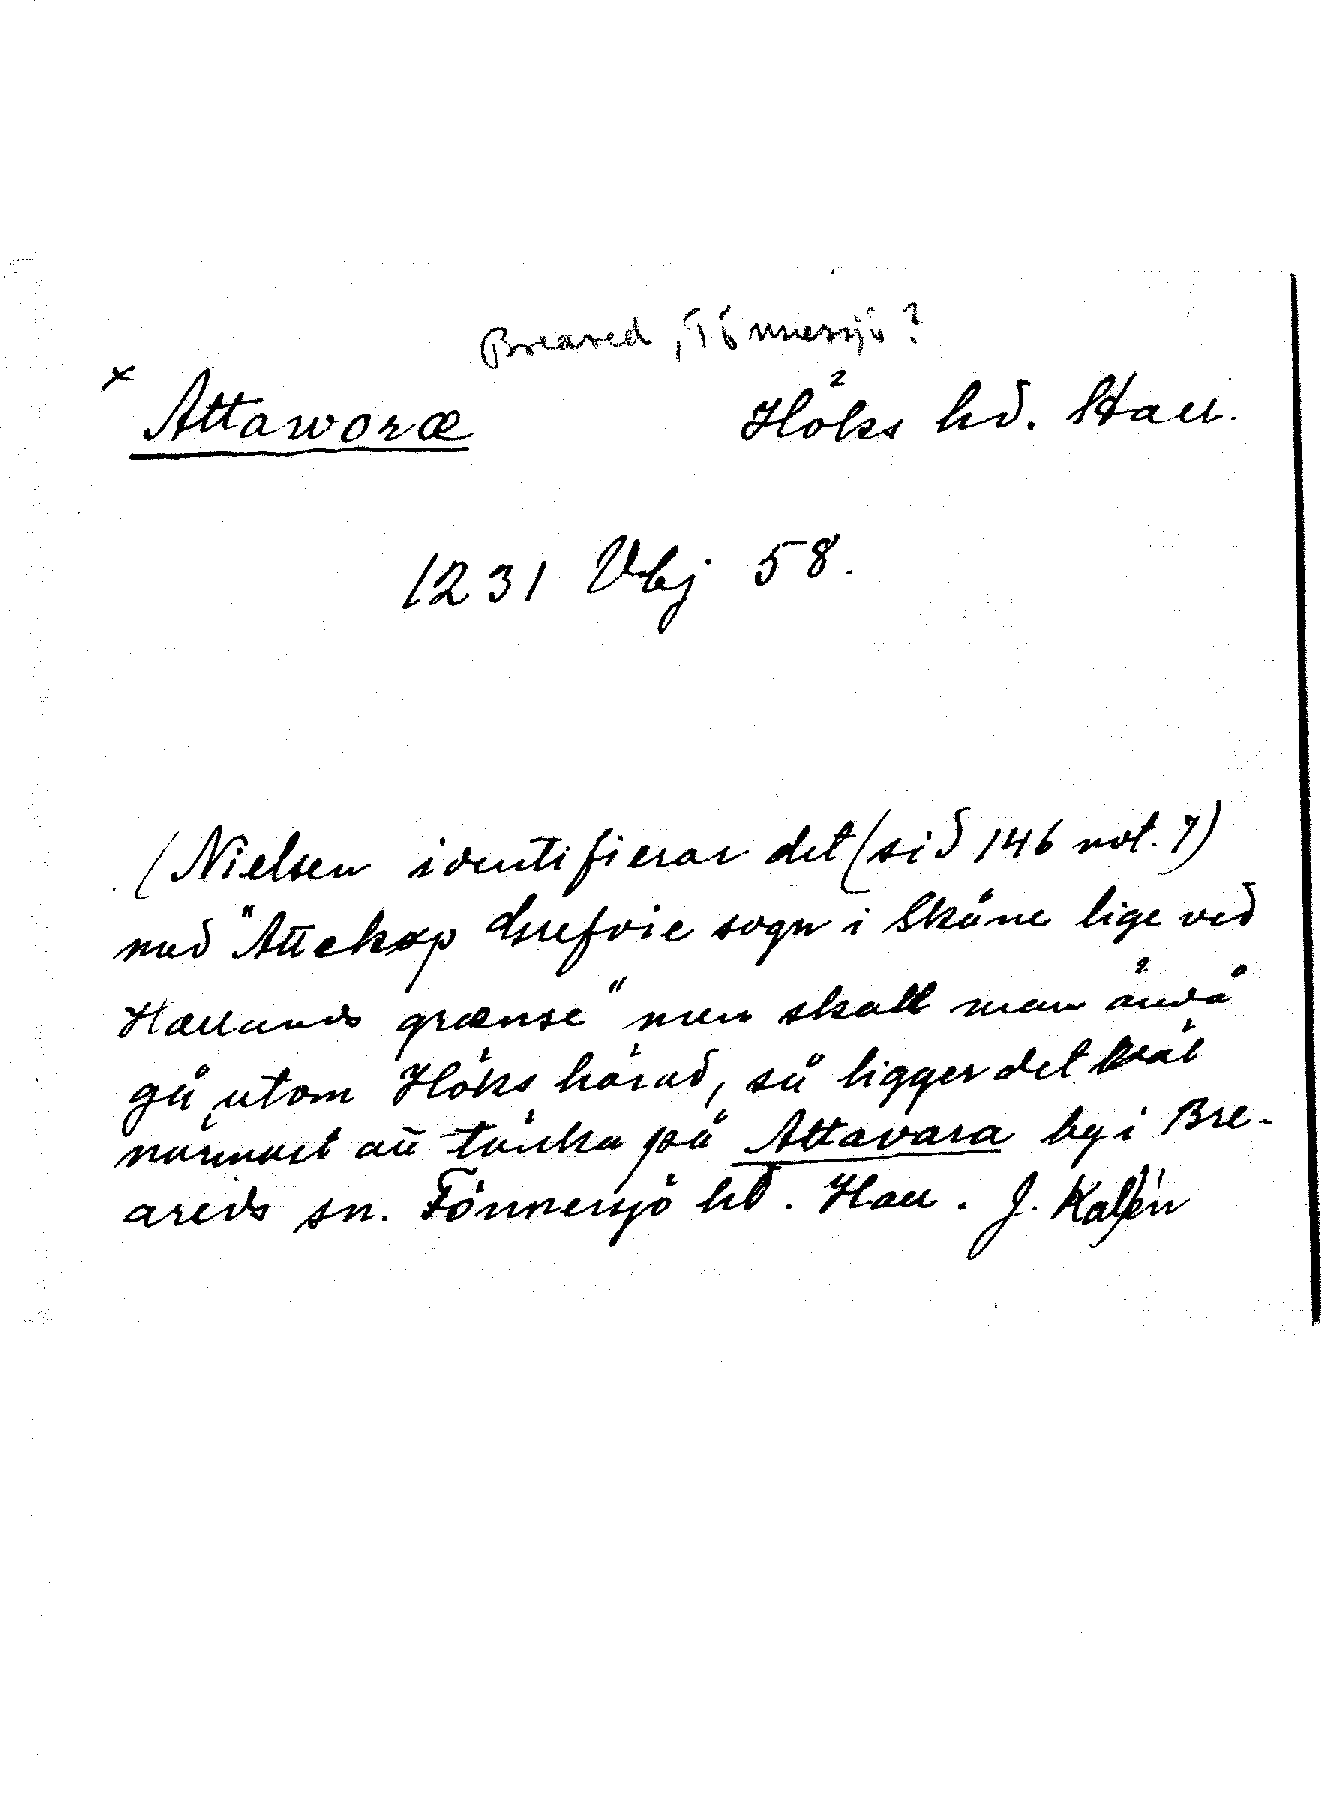 Breared, Tönnersjö?
x Attaworæ Höks hd. Hall.
1231 Vbj 58.
(Nielsen identifierar det (sid 146 not. 7)
med "Attekop Grefvie sogn i Skåne lige ved
Hallands grænse" men skall man ändå
gå utom Höks härad, så ligger det väl
närmast att tänka på Attavara by i Bre-
areds sn. Tönnersjö hd. Hall. J. Kalén